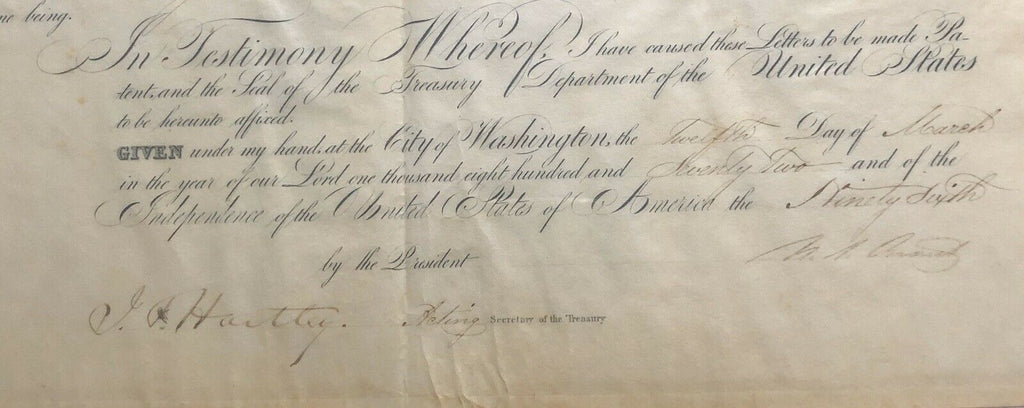 being.
In Testimony Whereof, I have caused these Letters to be made Pa-
tent, and the Seal of the Treasury Department of the United States
to be hereunto affixed.
GIVEN under my hand, at the City of Washington, the Twelfth Day of March
in the year of our Lord one thousand eight hundred and Seventy Two and of the
Independence of the United States of America the Ninety Sixth
by the President
J. F. Hartley. Acting Secretary of the Treasury